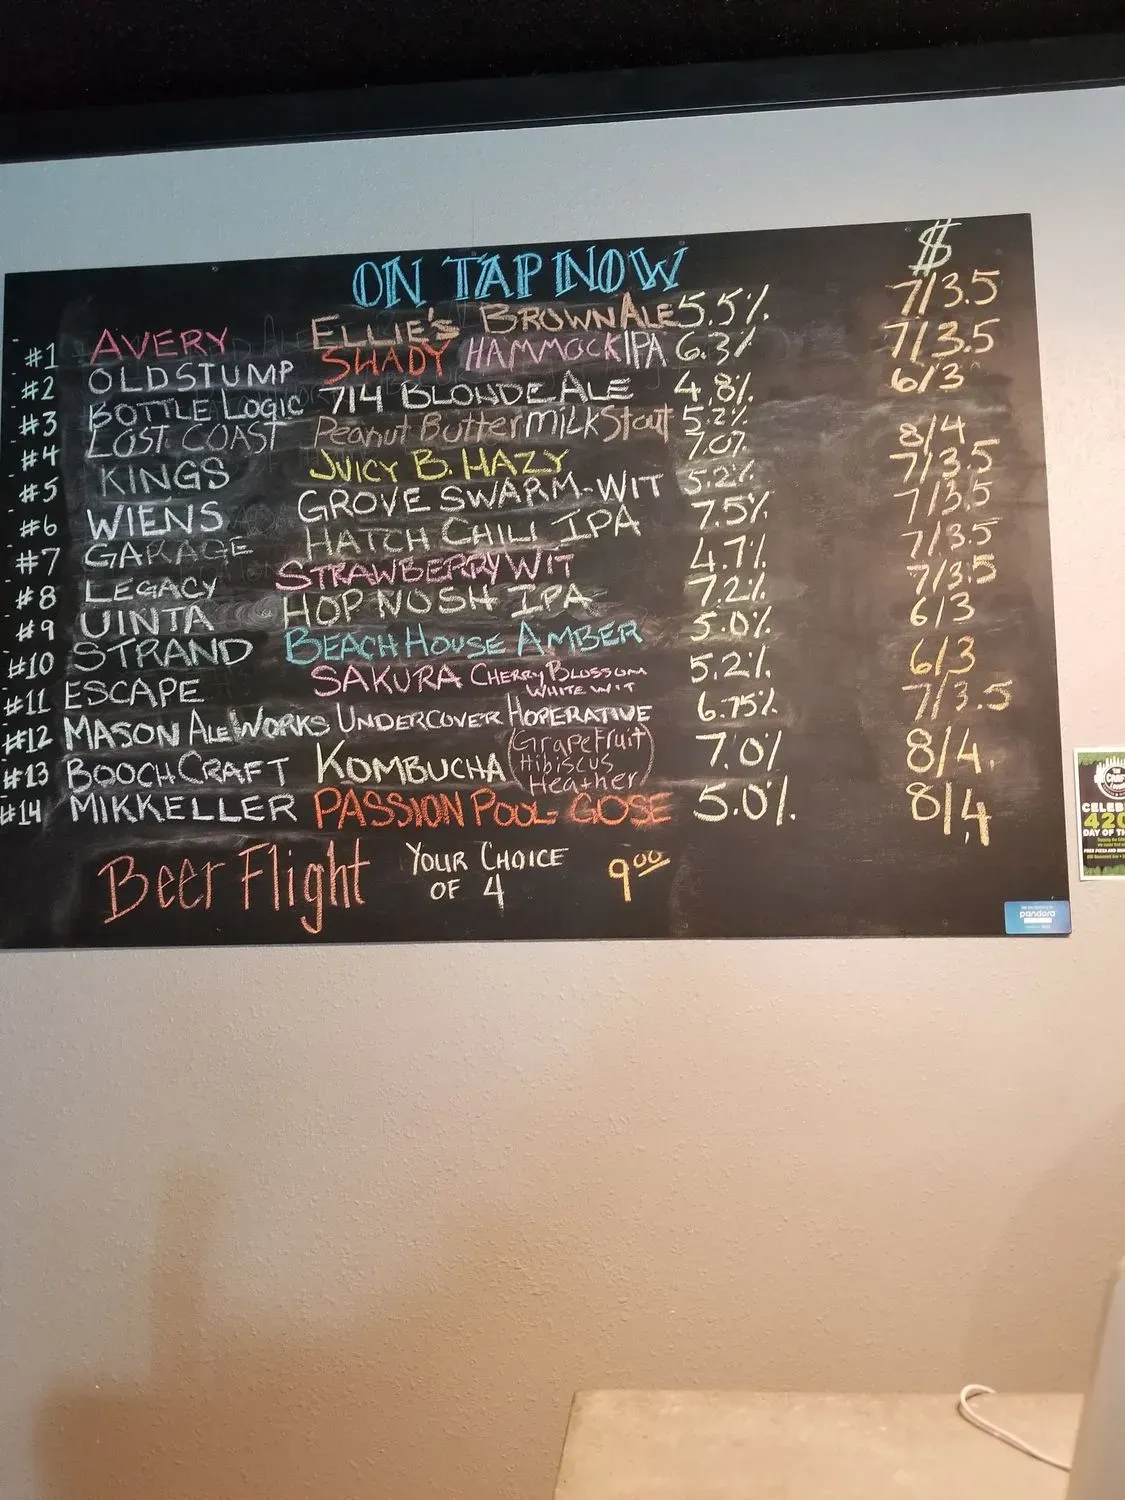 ON TAP NOW $
#1 AVERY ELLIE'S BROWN ALE 5.5% 7/3.5
#2 OLD STUMP SHADY HAMMOCK IPA 6.3% 7/3.5
#3 BOTTLE LOGIC 714 BLONDE ALE 4.8% 6/3
#4 LOST COAST Peanut Butter milk Stout 5.2% 8/4
#5 KINGS JUICY B. HAZY 7.0% 7/3.5
#6 WIENS GROVE SWARM-WIT 5.2% 7/3.5
#7 GARAGE HATCH CHILI IPA 7.5% 7/3.5
#8 LEGACY STRAWBERRY WIT 4.7% 7/3.5
#9 UINTA HOP NOSH IPA 7.2% 6/3
#10 STRAND BEACH HOUSE AMBER 5.0% 6/3
#11 ESCAPE SAKURA CHERRY BLOSSOM WHITE WIT 5.2% 7/3.5
#12 MASON ALE WORKS UNDERCOVER HOPERATIVE 6.75%
#13 BOOCHCRAFT KOMBUCHA (Grapefruit Hibiscus Heather) 7.0% 8/4
#14 MIKKELLER PASSION POOL- GOSE 5.0% 8/4
Beer Flight YOUR CHOICE OF 4 9.00
pandora
420
DAY OF